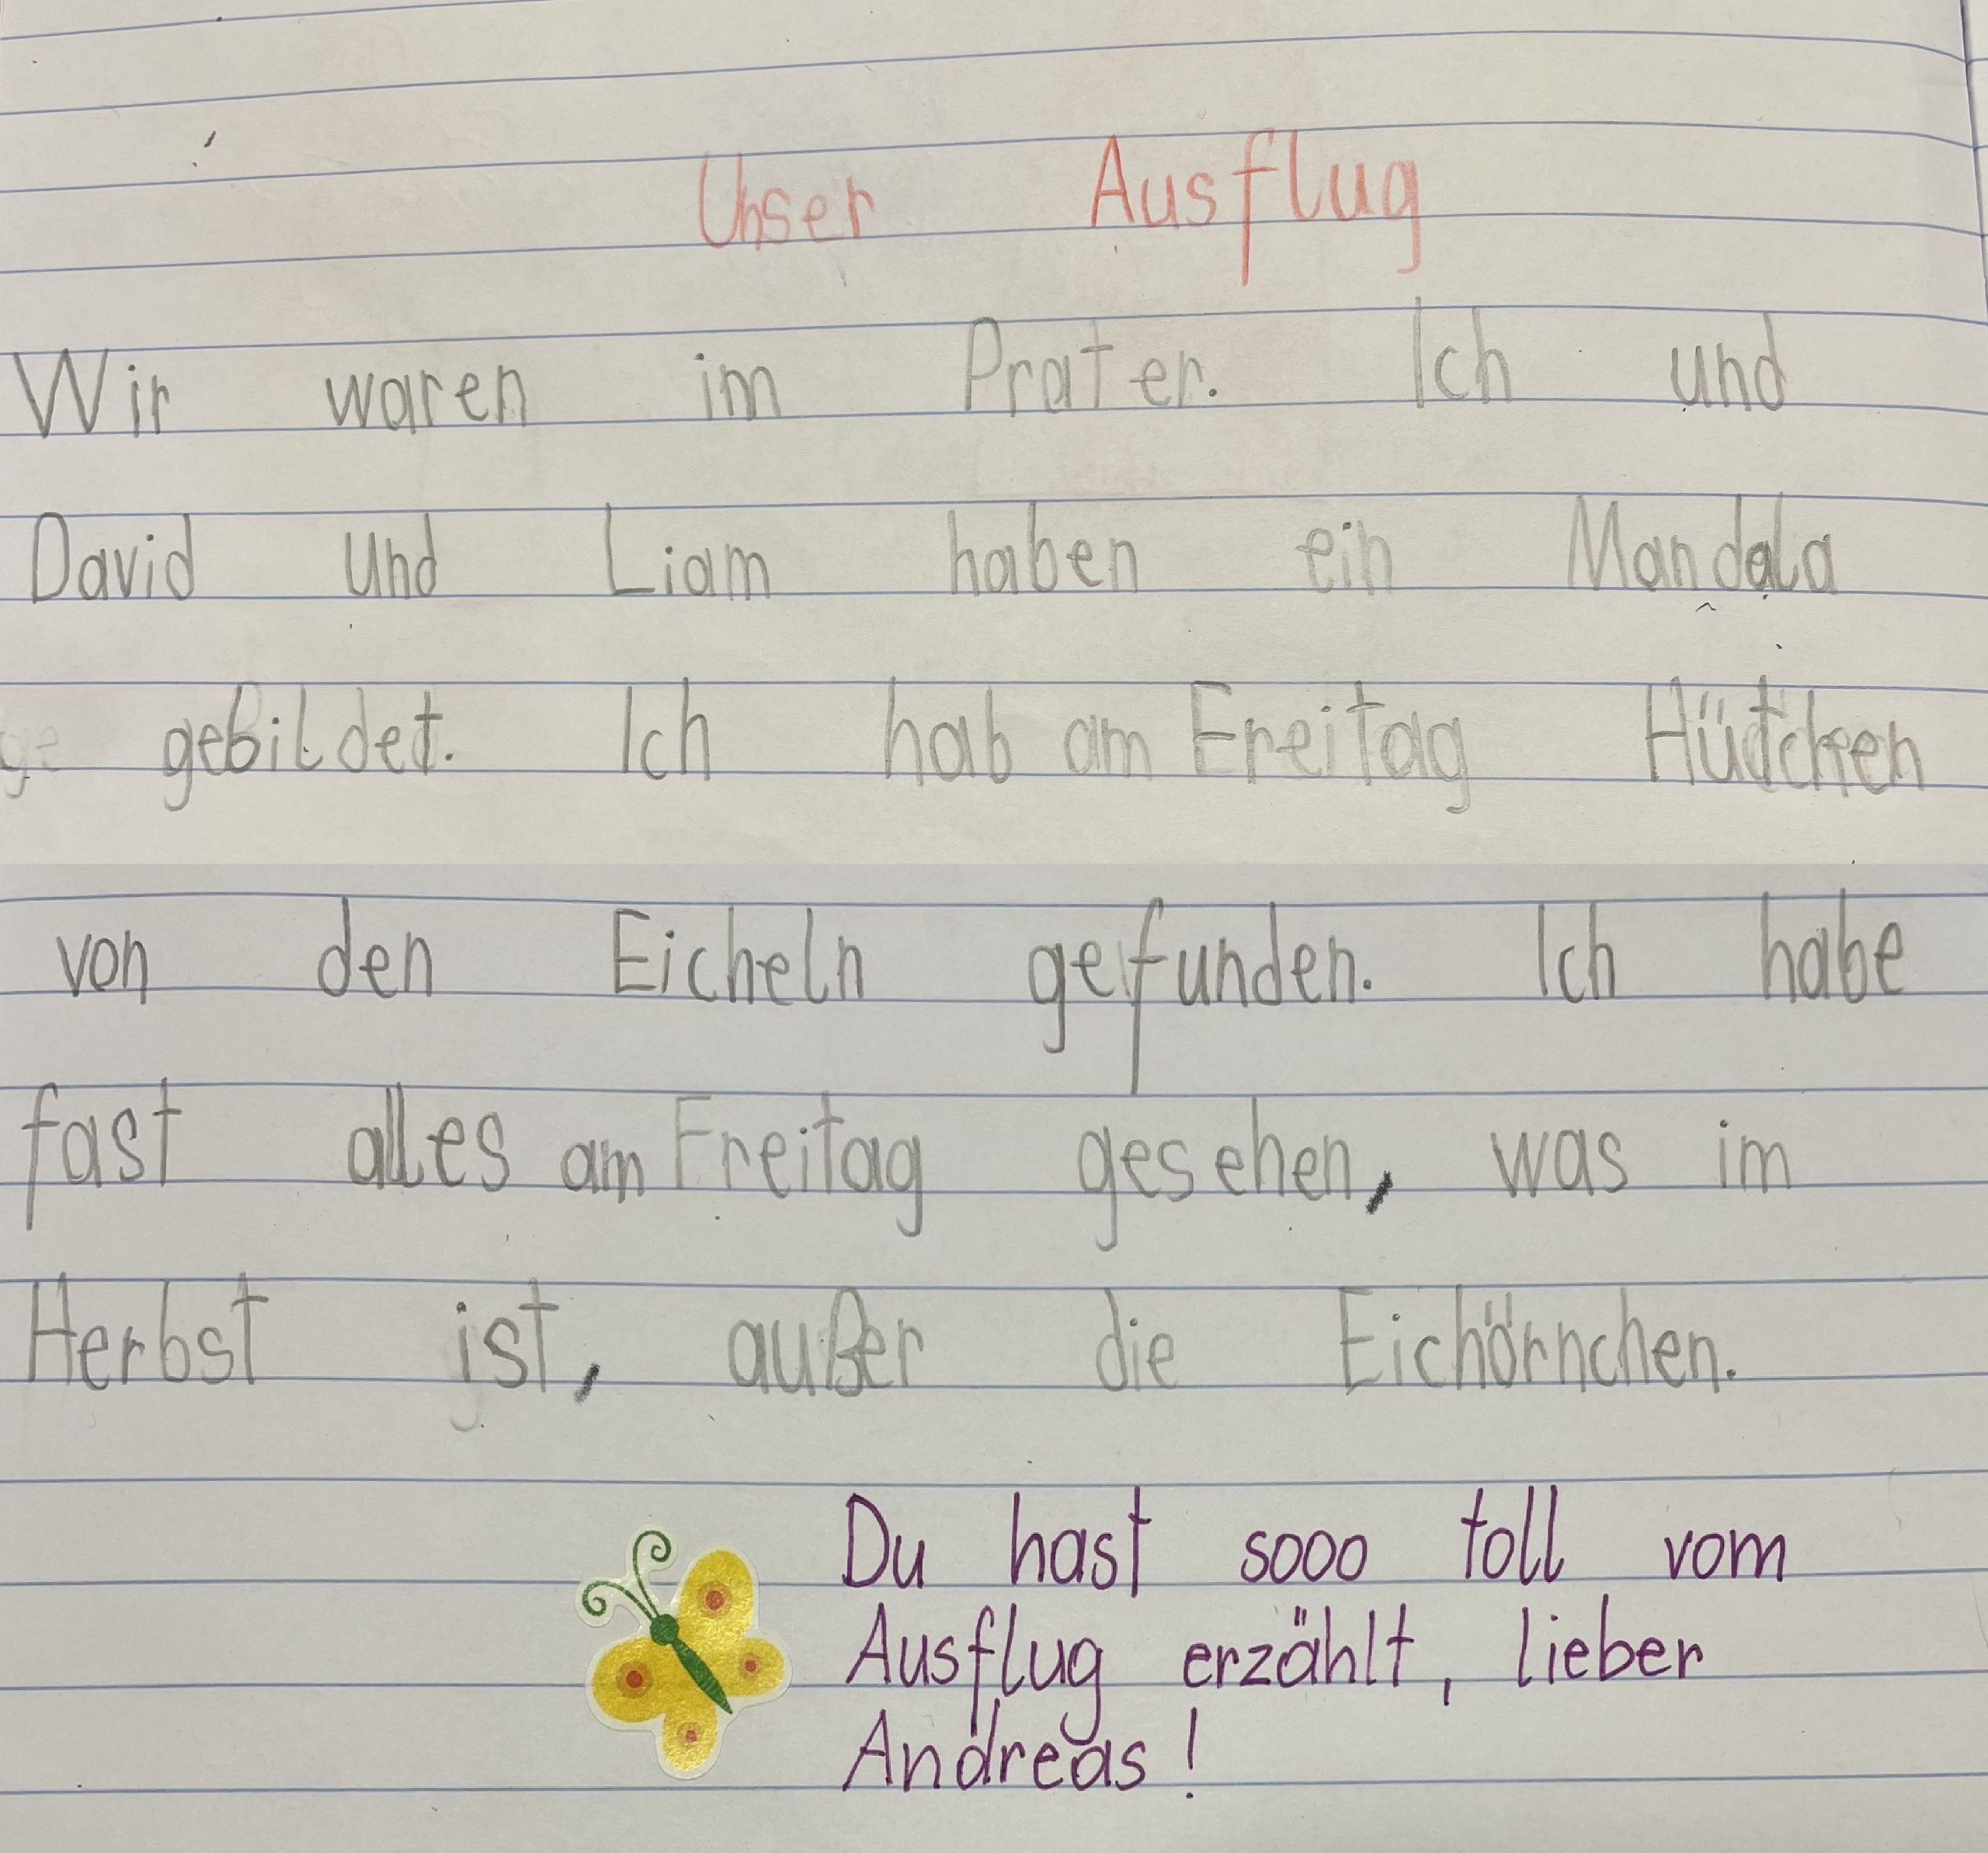 Unser Ausflug
Wir waren im Prater. Ich und
David und Liam haben ein Mandala
gebildet. Ich hab am Freitag Hütchen
von den Eicheln gefunden. Ich habe
fast alles am Freitag gesehen, was im
Herbst ist, außer die Eichörnchen.
Du hast sooo toll vom
Ausflug erzählt, lieber
Andreas!